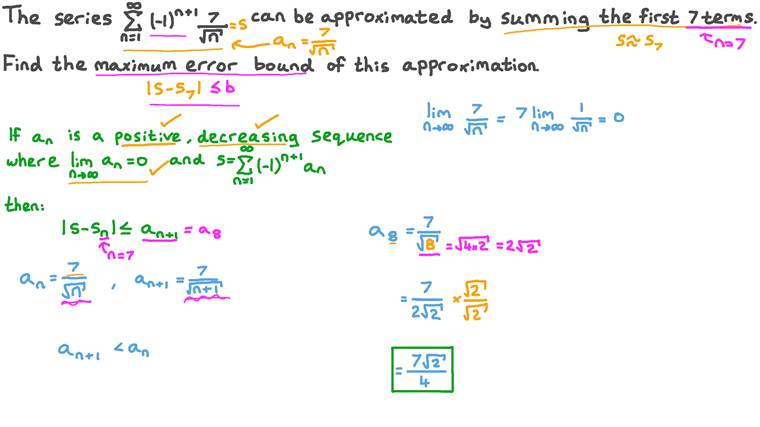 The series ∑_{n=1}^{∞} (-1)^{n+1} 7/√n = S can be approximated by summing the first 7 terms.
a_n = 7/√n
S ≈ S_7
n=7
Find the maximum error bound of this approximation.
|S-S_7| ≤ b
lim_{n→∞} 7/√n = 7 lim_{n→∞} 1/√n = 0
If a_n is a positive, decreasing sequence
where lim_{n→∞} a_n = 0 and S = ∑_{n=1}^{∞} (-1)^{n+1} a_n
then:
|S-S_n| ≤ a_{n+1} = a_8
n=7
a_n = 7/√n , a_{n+1} = 7/√(n+1)
a_{n+1} < a_n
a_8 = 7/√8 = √(4×2) = 2√2
= 7/(2√2) × √2/√2
= 7√2/4